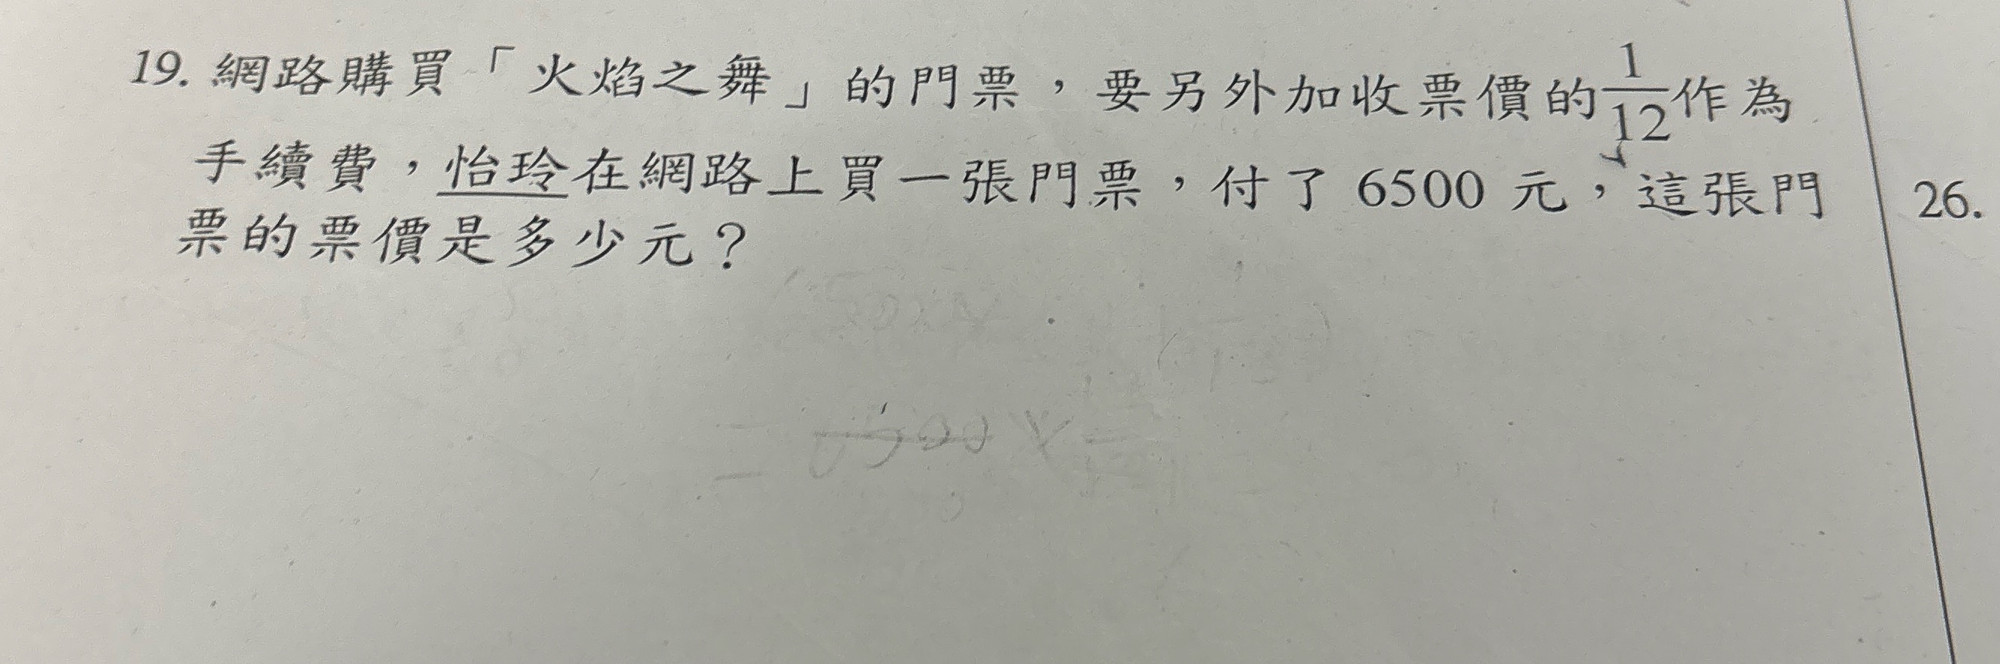 19. 網路購買「火焰之舞」的門票，要另外加收票價的1/12作為
手續費，怡玲在網路上買一張門票，付了 6500 元，這張門
票的票價是多少元？
26.